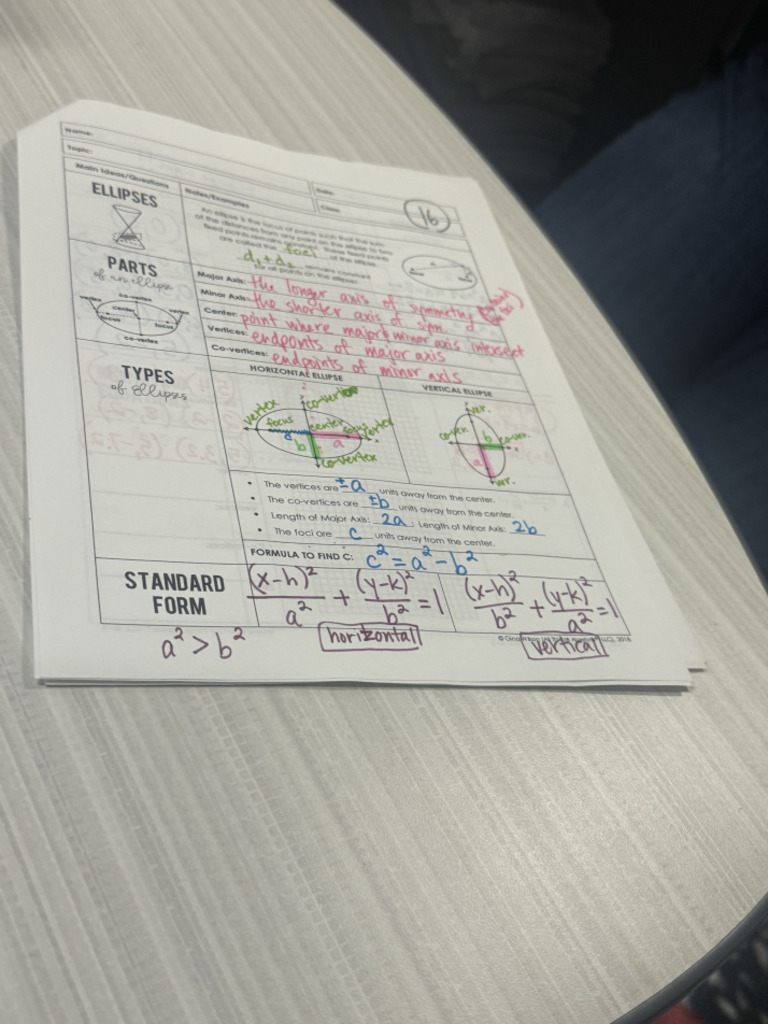 Name:
Date:
Topic:
Class:
Main Ideas/Questions
Notes/Examples
16
ELLIPSES
An ellipse is the locus of points such that the sum
of the distances from any point on the ellipse to two
fixed points remains constant. These fixed points
are called the foci of the ellipse.
d₁+d₂ remains constant
for all points on the ellipse!
PARTS
of an ellipse
vertex
co-vertex
center
vertex
focus
focus
co-vertex
Major Axis: the longer axis of symmetry
Minor Axis: the shorter axis of sym.
Center: point where major & minor axis intersect
Vertices: endponts of major axis
Co-vertices: endpoints of minor axis
TYPES
of Ellipses
HORIZONTAL ELLIPSE
VERTICAL ELLIPSE
vertex
co-vertex
focus
center
vertex
a
b
co-vertex
ver.
co-ver.
b
a
ver.
• The vertices are ±a units away from the center.
• The co-vertices are ±b units away from the center.
• Length of Major Axis: 2a; Length of Minor Axis: 2b
• The foci are c units away from the center.
FORMULA TO FIND C: c² = a² − b²
STANDARD
FORM
(x-h)²/a² + (y-k)²/b² = 1
(x-h)²/b² + (y-k)²/a² = 1
a² > b²
horizontal
vertical